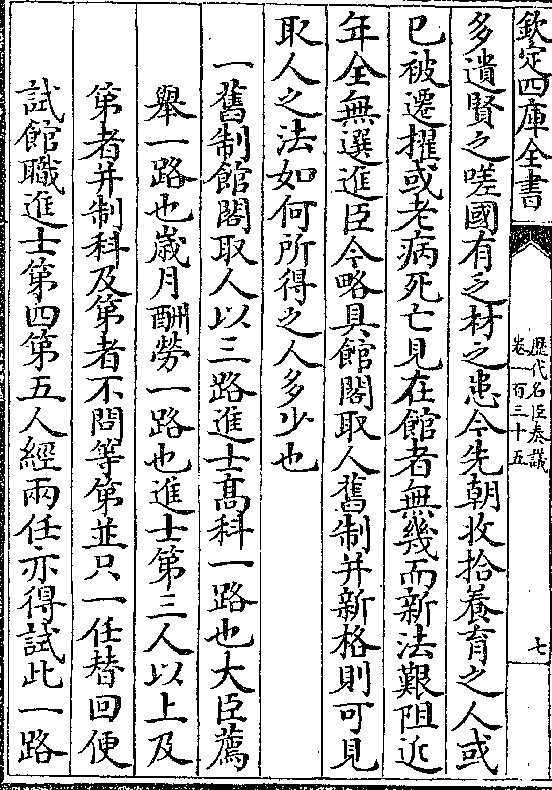 欽定四庫全書
歷代名臣奏議
卷一百三十五
七
多遺賢之嗟國有乏材之患今先朝收拾養育之人或
已被遷擢或老病死亡見在館者無幾而新法艱阻近
年全無選進臣今略具館閣取人舊制并新格則可見
取人之法如何所得之人多少也
一舊制館閣取人以三路進士髙科一路也大臣薦
舉一路也歳月酬勞一路也進士第三人以上及
第者并制科及第者不問等第並只一任替回便
試館職進士第四第五人經兩任亦得試此一路